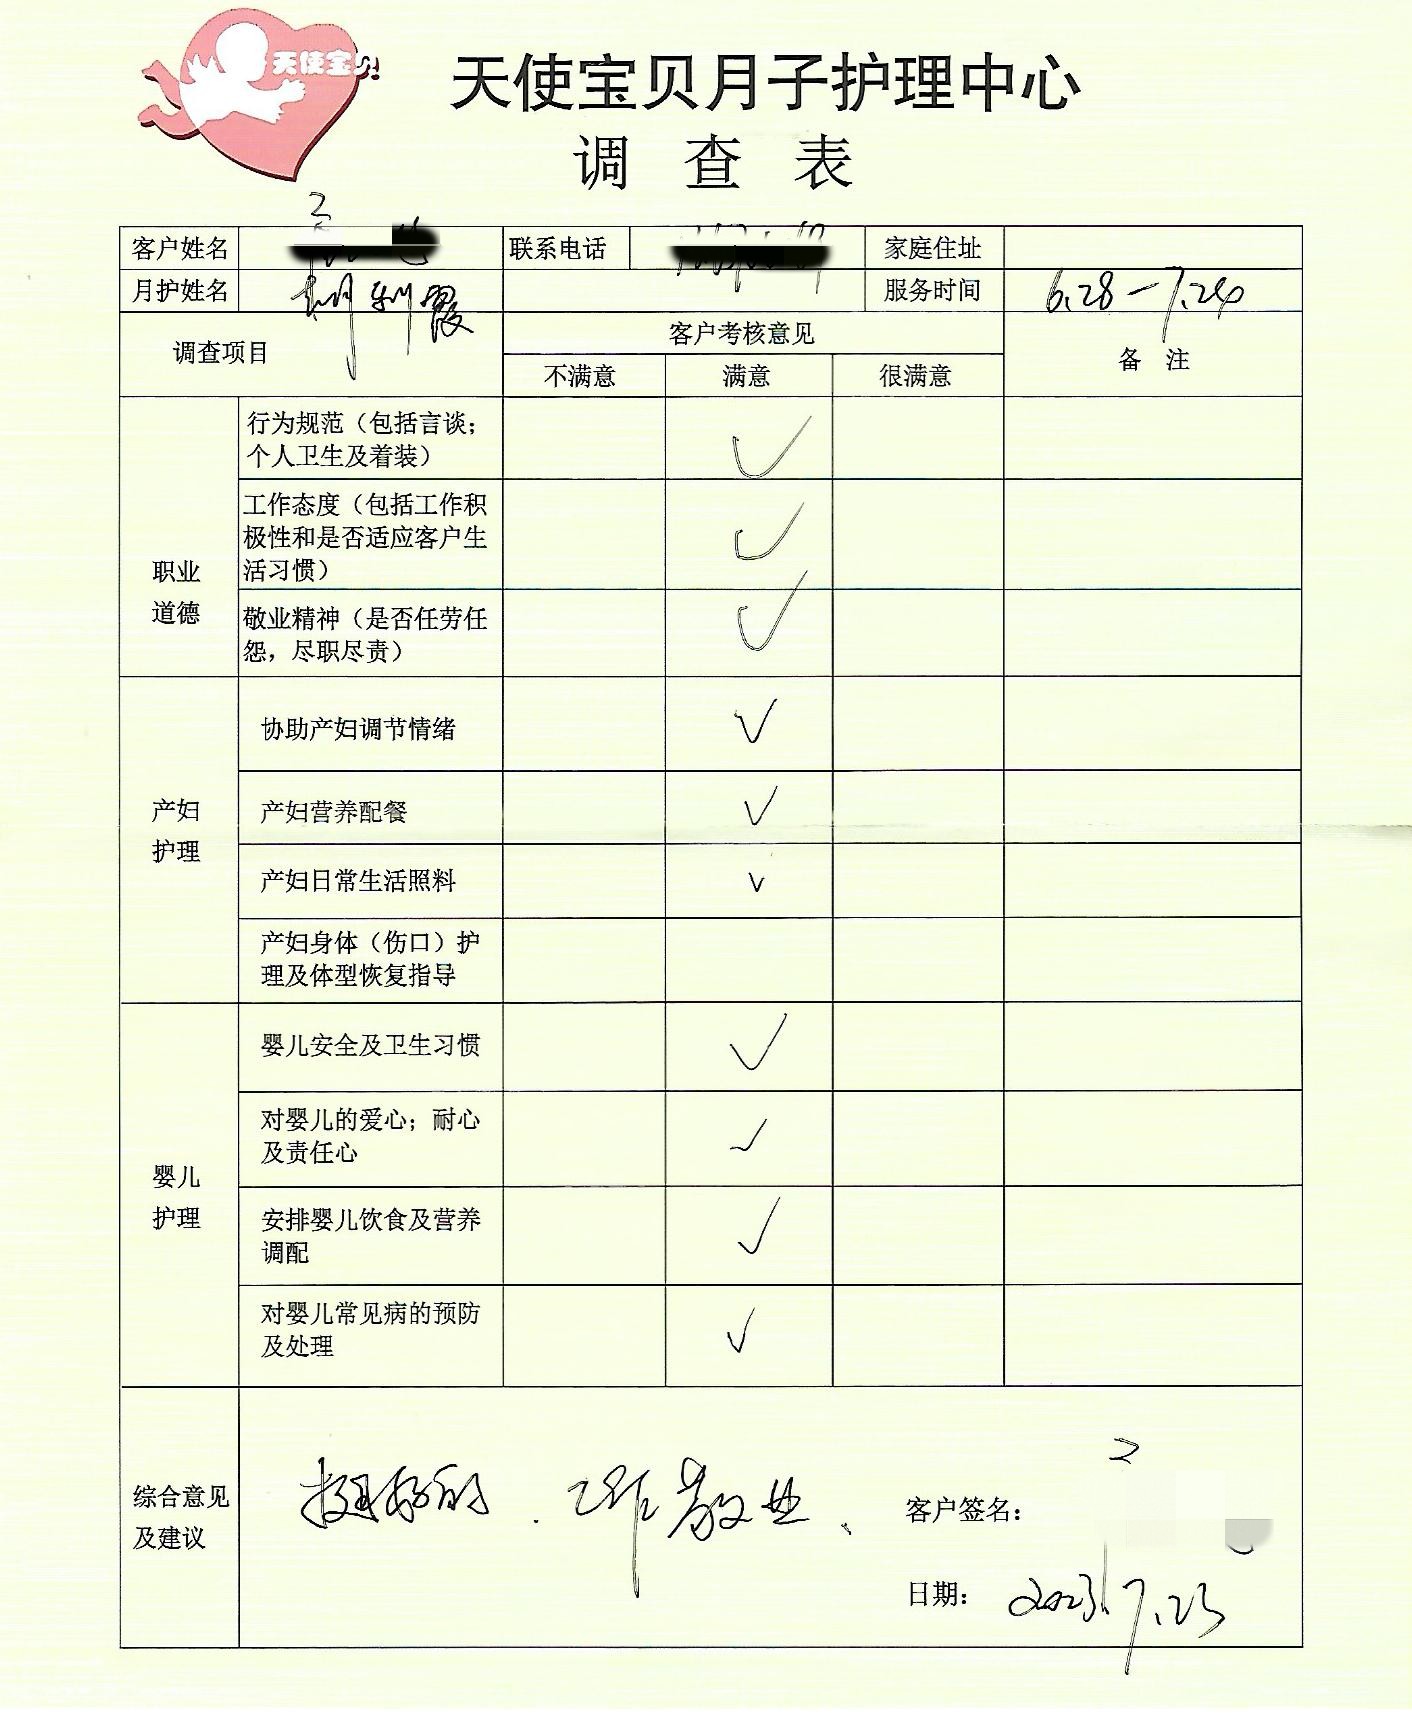 天使宝贝
天使宝贝月子护理中心
调 查 表
客户姓名 联系电话 家庭住址
月护姓名 服务时间 6.28-7.24
调查项目 客户考核意见 备 注
不满意 满意 很满意
职业
道德
行为规范（包括言谈；
个人卫生及着装） ✓
工作态度（包括工作积
极性和是否适应客户生
活习惯） ✓
敬业精神（是否任劳任
怨，尽职尽责） ✓
产妇
护理
协助产妇调节情绪 ✓
产妇营养配餐 ✓
产妇日常生活照料 ✓
产妇身体（伤口）护
理及体型恢复指导
婴儿
护理
婴儿安全及卫生习惯 ✓
对婴儿的爱心；耐心
及责任心 ✓
安排婴儿饮食及营养
调配 ✓
对婴儿常见病的预防
及处理 ✓
综合意见
及建议
挺好的．工作敬业、
客户签名：
日期： 2023.7.23